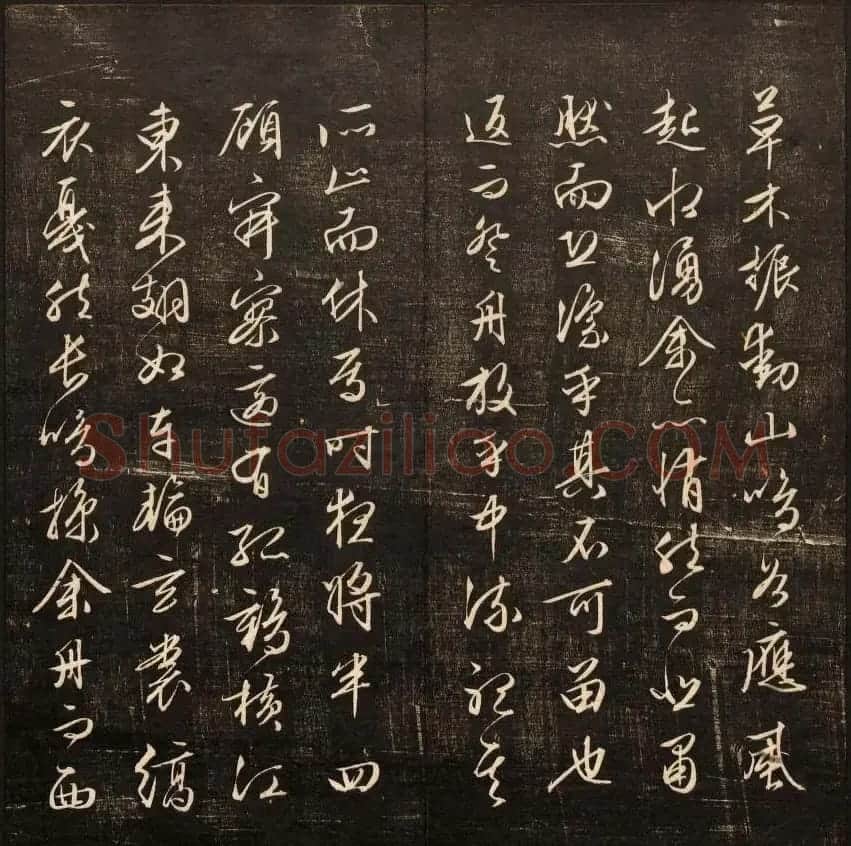 草木振動山鳴谷應風
起水湧余亦悄然而悲肅
然而恐凜乎其不可留也
返而登舟放乎中流聽其
所止而休焉時夜將半四
顧寂寥適有孤鶴橫江
東來翅如車輪玄裳縞
衣戛然長鳴掠余舟而西
Shufaziliao.COM